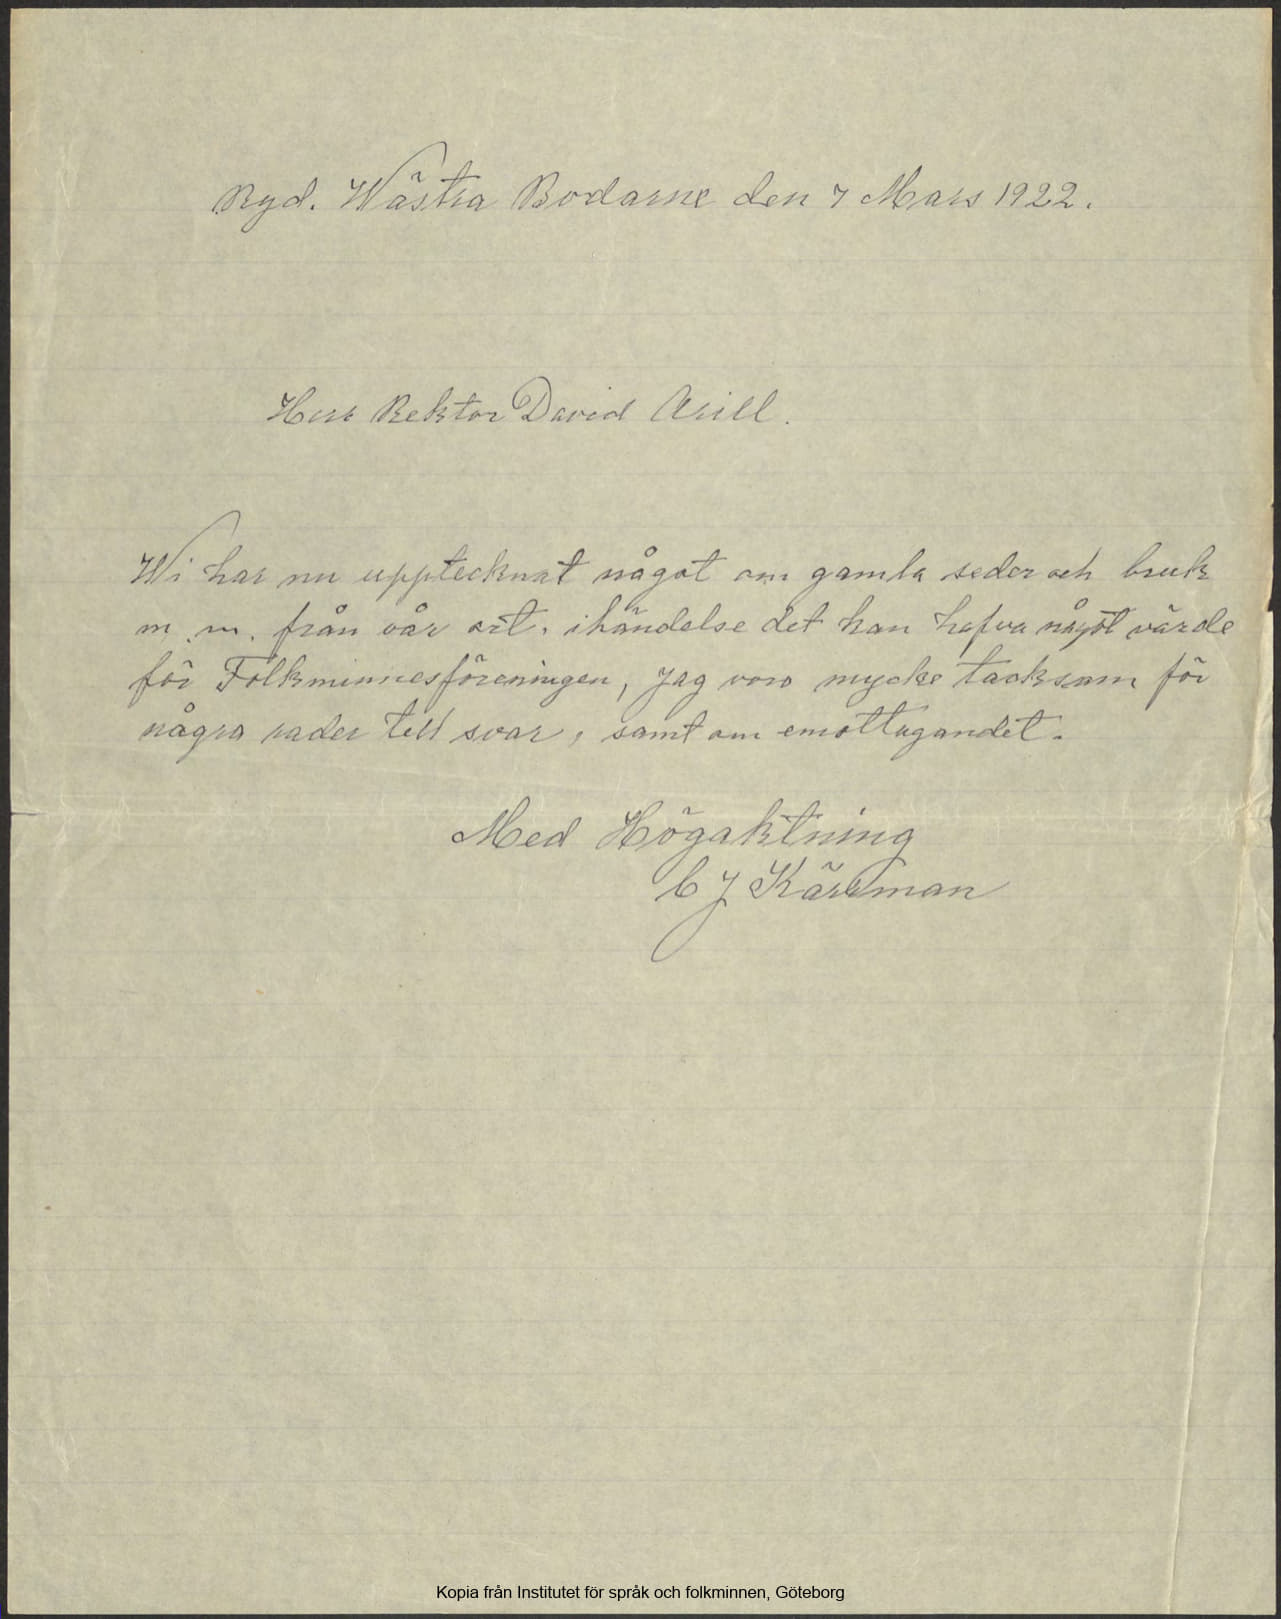 Ryd. Wästra Bodarne den 7 Mars 1922.
Herr Rektor David Arill.
Wi har nu upptecknat något om gamla seder och bruk
m. m. från vår ort. ihändelse det kan hafva något värde
för Folkminnesföreningen, jag voro mycke tacksam för
några rader till svar, samt om emottagandet.
Med Högaktning
C J Kärrman
Kopia från Institutet för språk och folkminnen, Göteborg